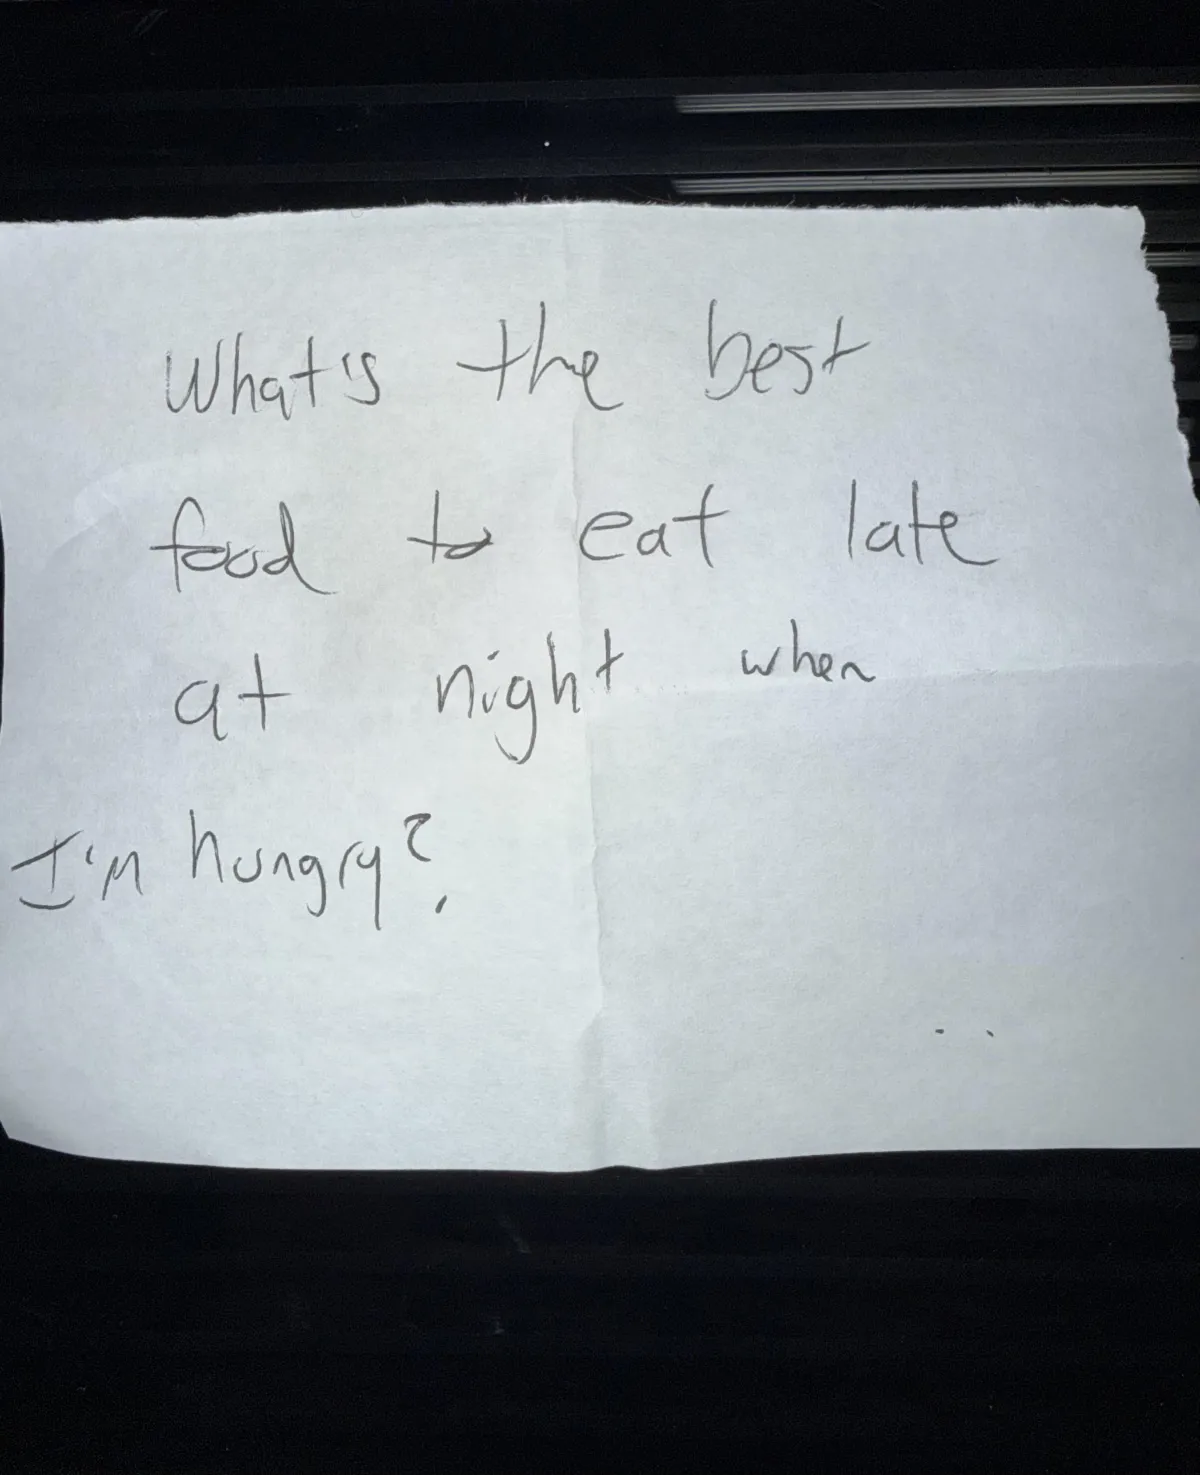 What's the best
food to eat late
at night when
I'm hungry?